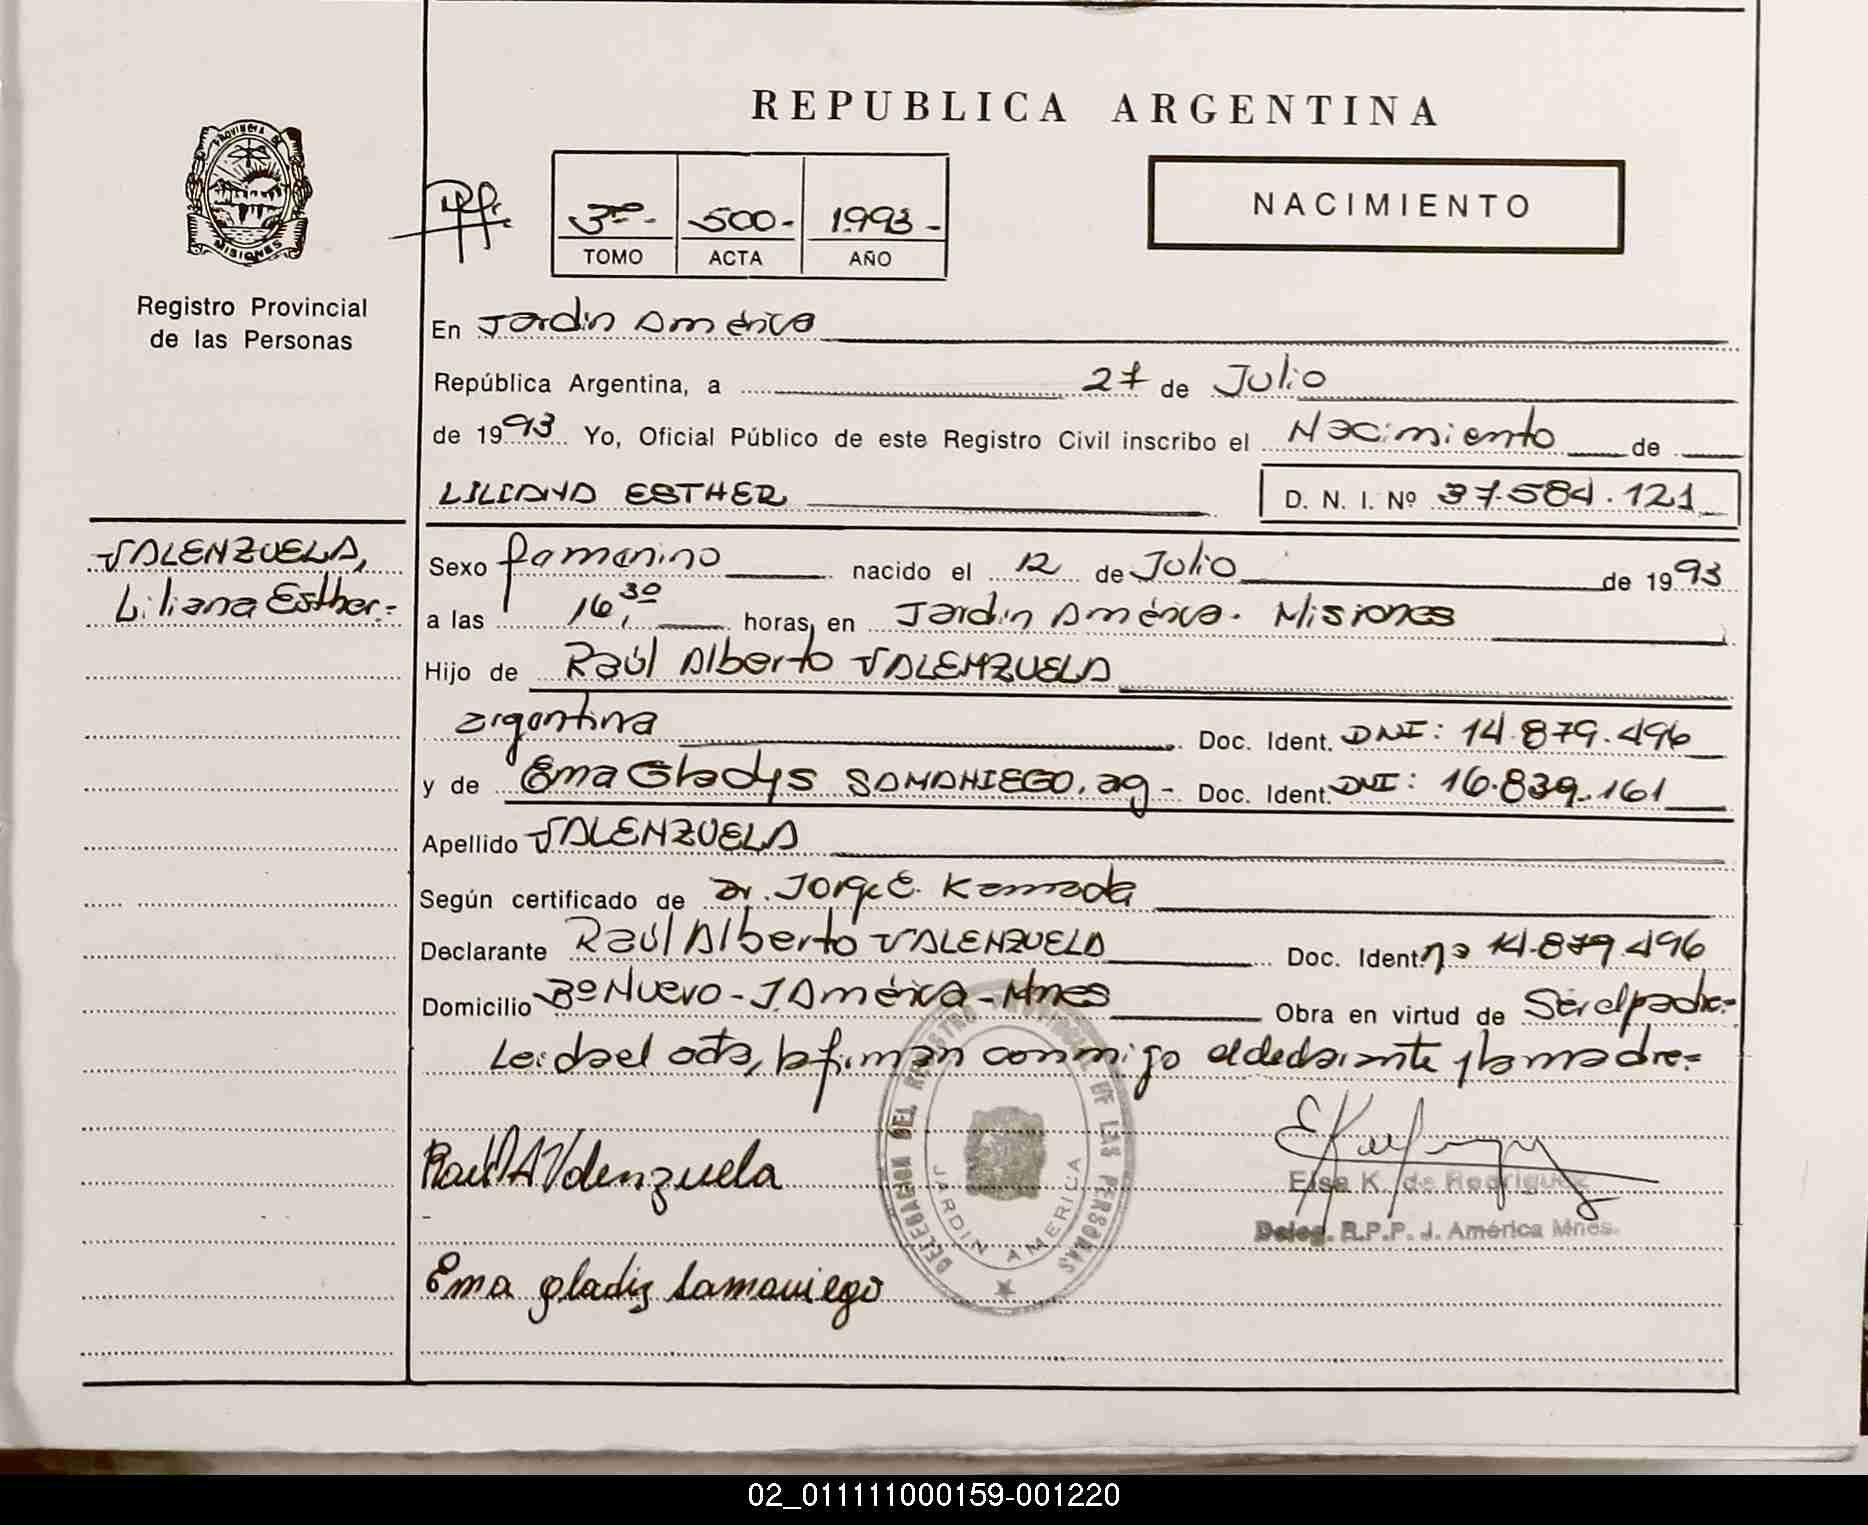 REPUBLICA ARGENTINA
PROVINCIA DE
MISIONES
Registro Provincial
de las Personas
3º- 500- 1993-
TOMO ACTA AÑO
NACIMIENTO
En Jardín América
República Argentina, a 27 de Julio
de 1993 Yo, Oficial Público de este Registro Civil inscribo el Nacimiento de
LILIANA ESTHER D. N. I. Nº 37.584.121
VALENZUELA,
Liliana Esther.=
Sexo femenino nacido el 12 de Julio de 1993
a las 16,30 horas, en Jardín América. Misiones
Hijo de Raúl Alberto VALENZUELA
argentina Doc. Ident. DNI: 14.879.496
y de Ema Gladys SAMANIEGO, ag- Doc. Ident. DNI: 16.839.161
Apellido VALENZUELA
Según certificado de Dr. Jorge E. Kamada
Declarante Raúl Alberto VALENZUELA Doc. Ident. nº 14.879.496
Domicilio Bº Nuevo - J. América - Mnes Obra en virtud de Ser el padre.=
Leída el acta, la firman conmigo el declarante y la madre.=
Raul A Valenzuela
Elsa K. de Rodriguez
Deleg. R.P.P. J. América Mnes.
DELEGACION DEL REGISTRO PROVINCIAL DE LAS PERSONAS
JARDIN AMERICA
Ema gladiz Samaniego
02_011111000159-001220